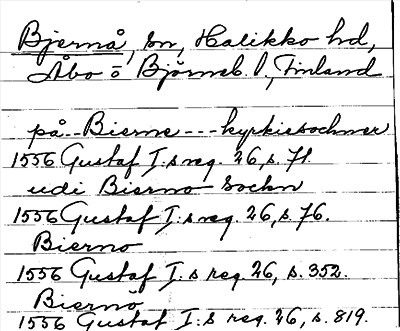 Bjernå, sn, Halikko hd,
Åbo o Björneb. l, Finland
på -- Bierne --- kyrkiesochner
1556 Gustaf I:s reg. 26, s. 71.
udi Bierno Sockn
1556 Gustaf I:s reg. 26, s. 76.
Bierno
1556 Gustaf I:s reg. 26, s. 352.
Biernö
1556 Gustaf I:s reg. 26, s. 819.